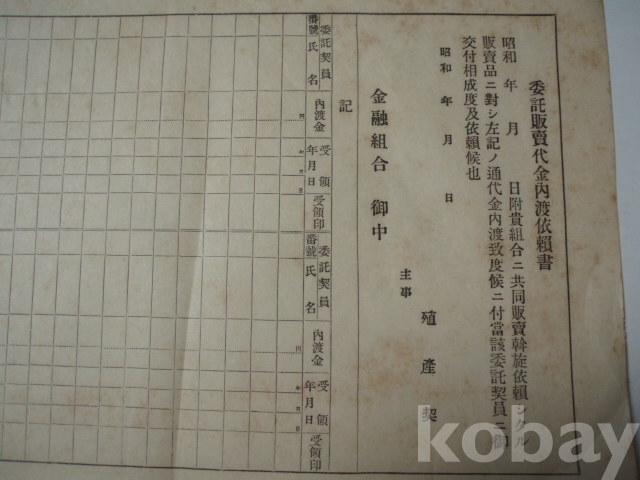 委託販賣代金內渡依賴書
昭和 年 月 日附貴組合ニ共同販賣斡旋依賴シタル
販賣品ニ對シ左記ノ通代金內渡致度候ニ付當該委託契員ニ御
交付相成度及依賴候也
昭和 年 月 日
主事
殖產契
金融組合 御中
記
委託契員
番號 氏名
內渡金
受領
年月日
受領印
委託契員
番號 氏名
內渡金
受領
年月日
受領印
円
年月日
円
年月日
kobay